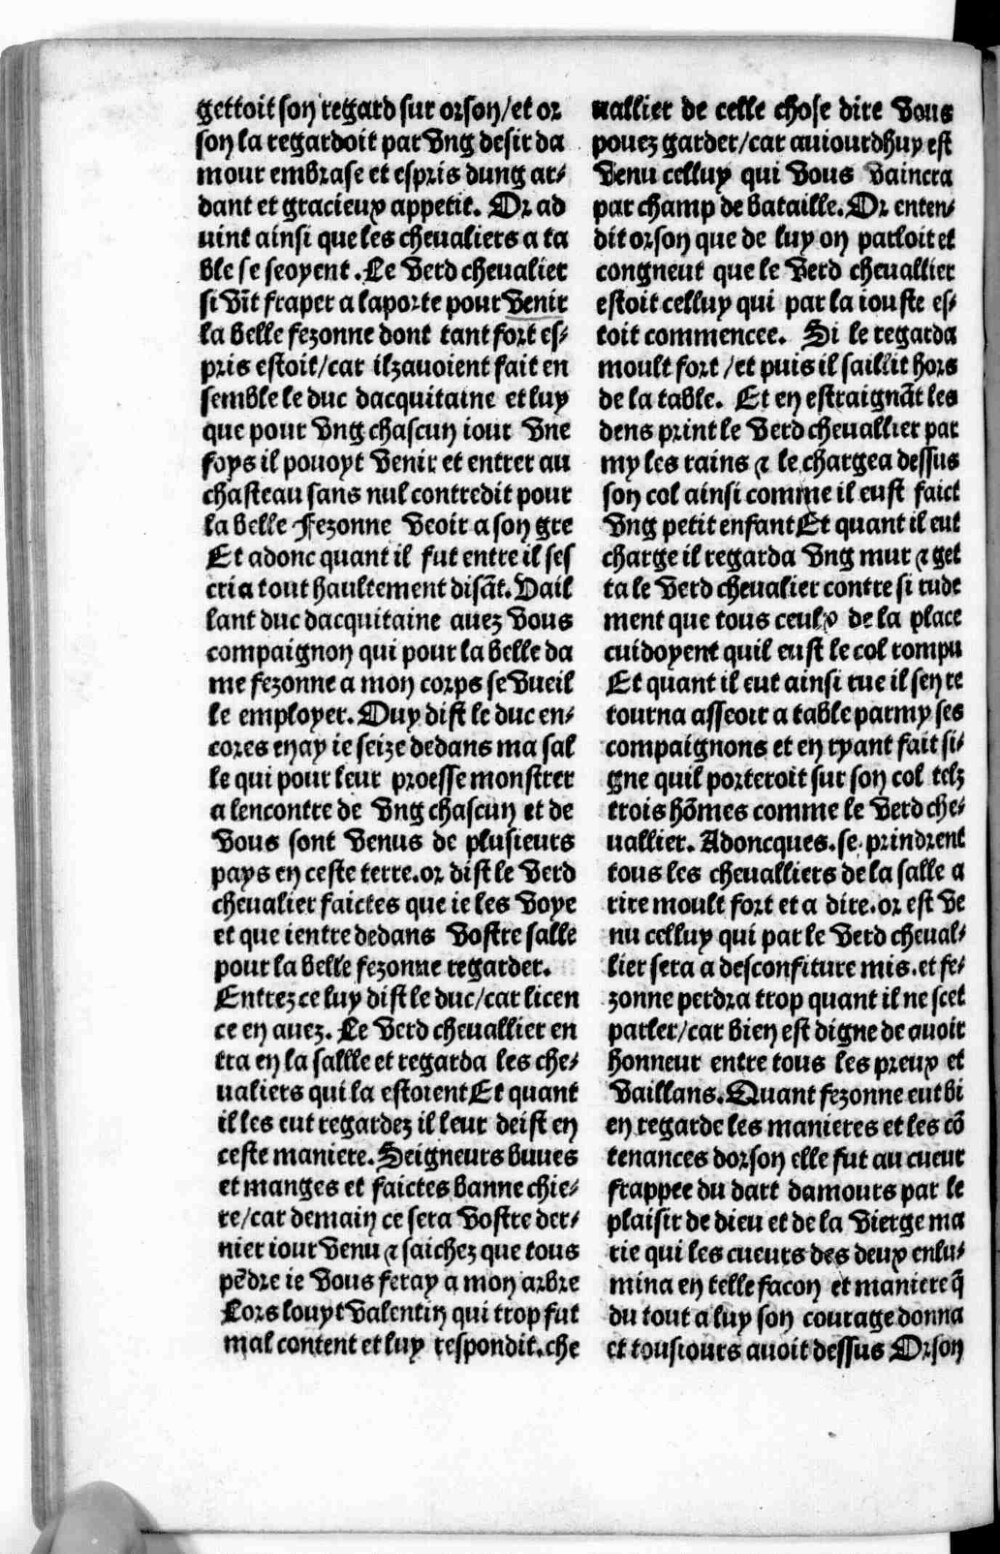 gettoit son regard sur orson/et or
son la regardoit par vng desir da
mour embrase et espris dung ar-
dant et gracieux appetit. Or ad
uint ainsi que les cheualiers a ta
ble se seoyent. Le verd cheualier
si vīt fraper a laporte pour venir
la belle fezonne dont tant fort es-
pris estoit/car ilzauoient fait en
semble le duc dacquitaine et luy
que pour vng chascun iour vne
foys il pouoyt venir et entrer au
chasteau sans nul contredit pour
la belle Fezonne veoir a son gre
Et adonc quant il fut entre il ses
cria tout haultement disāt. Vail
lant duc dacquitaine auez vous
compaignon qui pour la belle da
me fezonne a mon corps se vueil
le employer. Ouy dist le duc en-
cores enay ie seize dedans ma sal
le qui pour leur proesse monstrer
a lencontre de vng chascun et de
vous sont venus de plusieurs
pays en ceste terre. or dist le verd
cheualier faictes que ie les voye
et que ientre dedans vostre salle
pour la belle fezonne regarder.
Entrez ce luy dist le duc/car licen
ce en auez. Le verd cheuallier en
tra en la sallle et regarda les che-
ualiers qui la estoient Et quant
il les eut regardez il leur deist en
ceste maniere. Seigneurs buues
et manges et faictes banne chie-
re/car demain ce sera vostre der-
nier iour venu ⁊ saichez que tous
pēdre ie vous feray a mon arbre
Lors louyt valentin qui trop fut
mal content et luy respondit. che
uallier de celle chose dire vous
pouez garder/car auiourdhuy est
venu celluy qui vous vaincra
par champ de bataille. Or enten-
dit orson que de luy on parloit et
congneut que le verd cheuallier
estoit celluy qui par la iouste es-
toit commencee. Si le regarda
moult fort/et puis il saillit hors
de la table. Et en estraignāt les
dens print le verd cheuallier par
my les rains ⁊ le chargea dessus
son col ainsi comme il eust faict
vng petit enfant Et quant il eut
charge il regarda vng mur ⁊ get
ta le verd cheualier contre si rude
ment que tous ceulx de la place
cuidoyent quil eust le col rompu
Et quant il eut ainsi rue il sen re
tourna asseoir a table parmy ses
compaignons et en ryant fait si-
gne quil porteroit sur son col telz
trois hōmes comme le verd che-
uallier. Adoncques. se prindrent
tous les cheualliers de la salle a
rire moult fort et a dire. or est ve
nu celluy qui par le verd cheual-
lier sera a desconfiture mis. et fe-
zonne perdra trop quant il ne scet
parler/car bien est digne de auoir
honneur entre tous les preux et
vaillans. Quant fezonne eut bi
en regarde les manieres et les cō
tenances dorson elle fut au cueur
frappee du dart damours par le
plaisir de dieu et de la vierge ma
rie qui les cueurs des deux enlu-
mina en telle facon et maniere q̄
du tout a luy son courage donna
et tousiours auoit dessus Orson